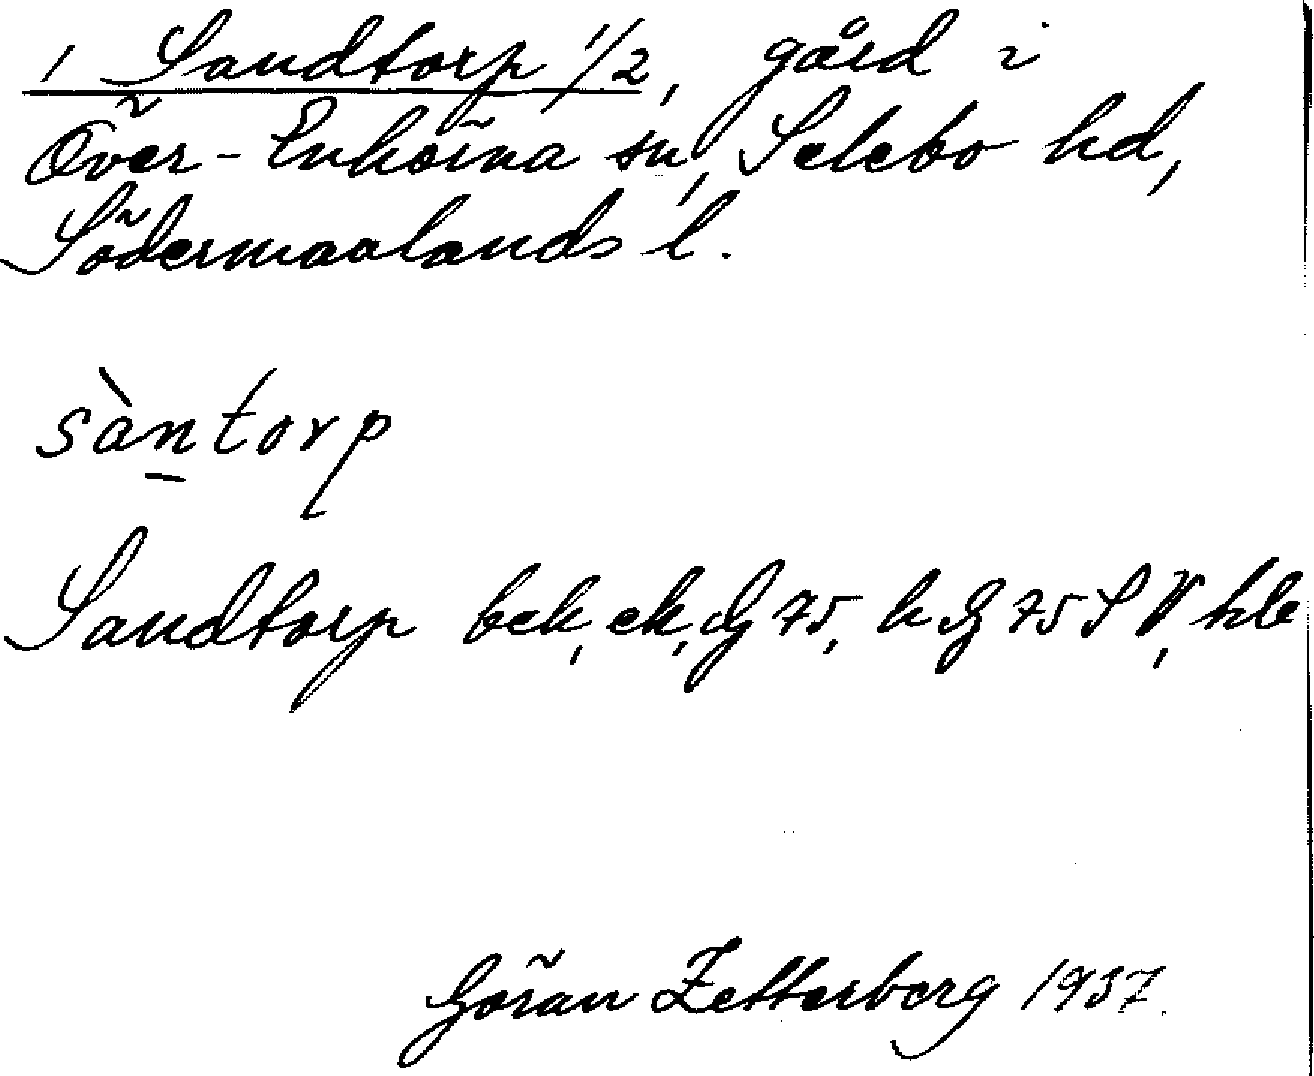 1 Sandtorp 1/2, gård i
Över-Enhörna sn, Selebo hd,
Södermanlands l.
sàntorp
Sandtorp bek, ek, G 75, h G 75 S V, hle
Göran Zetterberg 1937.